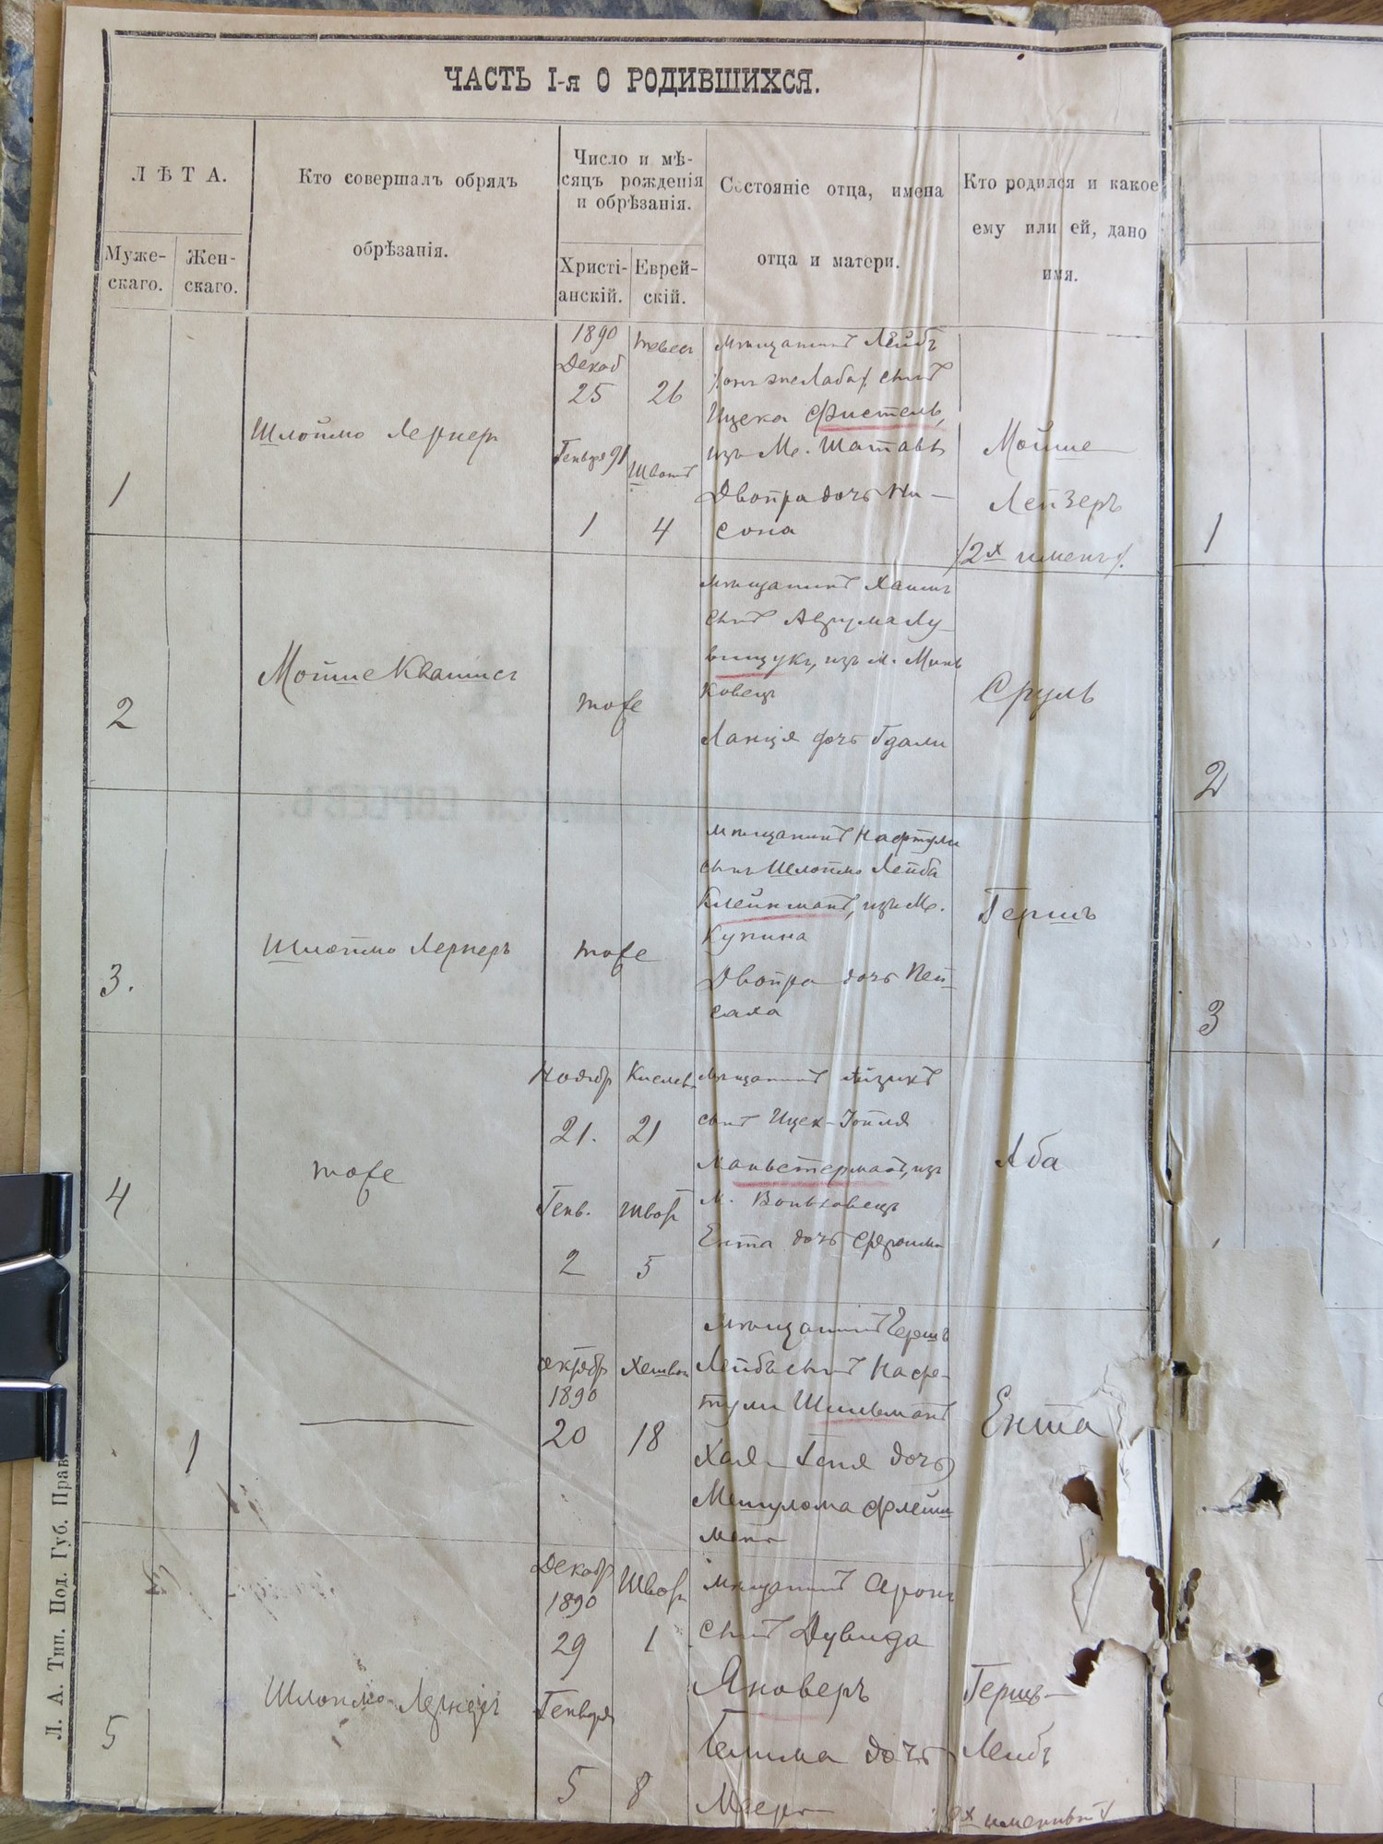 ЧАСТЬ I-я О РОДИВШИХСЯ.
ЛѢТА.
Муже-
скаго.
Жен-
скаго.
Кто совершалъ обрядъ
обрѣзанія.
Число и мѣ-
сяцъ рожденія
и обрѣзанія.
Христі-
анскій.
Еврей-
скій.
Состояніе отца, имена
отца и матери.
Кто родился и какое
ему или ей, дано
имя.
1
Шлоймо Лернеръ
1890
Декаб
25
Генваря 91
1
Тевес
26
Шватъ
4
мѣщанинъ Лейбъ
сынъ
Ицека Фистель,
изъ М. Шатавъ
Двойра дочь Ни-
сона
Мойше
Лейзеръ
/2х именъ/.
1
2
Мойше Квашисъ
тоже
мѣщанинъ Хаимъ
сынъ Аврума Лу-
вищукъ, изъ м. Минь
ковецъ
Ланця дочь Гдали
Сруль
2
3.
Шлоймо Лернеръ
тоже
мѣщанинъ Нафтули
сынъ Шлоймо Лейба
Клейнманъ, изъ М.
Купина
Двойра дочь Пей-
саха
Гершъ
3
4
тоже
Ноябр
21.
Генв.
2
Кислев
21
Шват
5
мѣщанинъ Айзикъ
сынъ Ицек-Іойля
изъ
м. Воньковецъ
Ента дочь Фроима
Аба
1
октябр
1890
20
Хешван
18
мѣщанинъ Гершъ
Лейба сынъ Наф-
тули Шильманъ
Хая-Геня дочь
Мешулома Флейш
мана
Ента
5
Шлоймо Лернеръ
Декабр
1890
29
Генваря
5
Шват
1
8
мѣщанинъ Аронъ
сынъ Дувида
Яноверъ
дочь
Меера
Гершъ-
Лейбъ
2х именный
Л. А. Тип. Под. Губ. Прав.